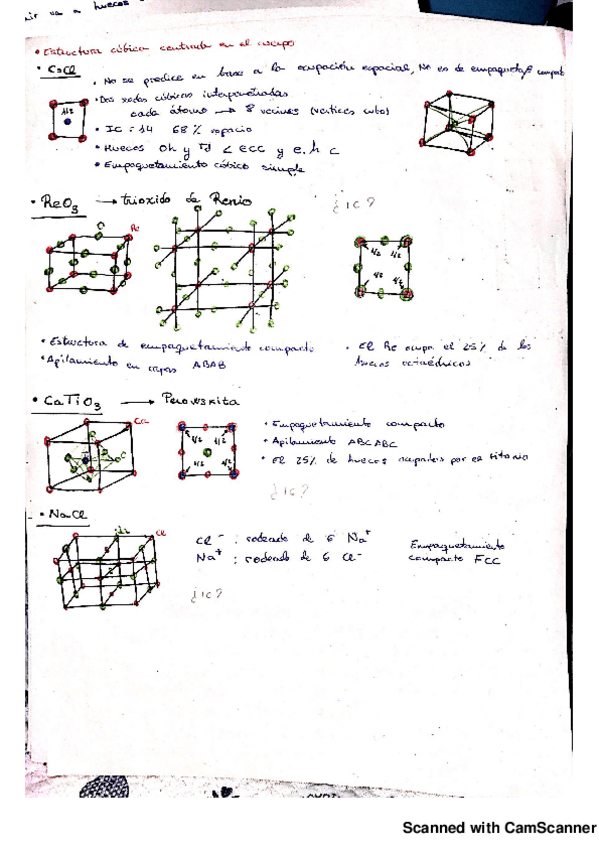 ir va a huecos
• Estructura cúbica centrada en el cuerpo
• CsCl
• No se predice en base a la ocupación espacial, No es de empaquetado compat
• Dos redes cúbicas interpenetradas
cada átomo → 8 vecinos (vertices cubo)
1/2
• IC = 14 68% espacio
• Huecos Oh y Td < ECC y e.h c
• Empaquetamiento cúbico simple
• ReO3 → trióxido de Renio ¿ic?
O Re
1/2 1/2
1/2 1/2
• Estructura de empaquetamiento compacto
• Apilamiento en capas ABAB
• El Re ocupa el 25% de los
huecos octaédricos
• CaTiO3 → Perovskita
Ca
1/2 1/2
1/2 1/2
• Empaquetamiento compacto
• Apilamiento ABCABC
• El 25% de huecos ocupados por el titanio
¿ic?
• NaCl
Cl
Cl⁻ : rodeado de 6 Na⁺
Na⁺ : rodeado de 6 Cl⁻
Empaquetamiento
compacto FCC
¿ic?
Scanned with CamScanner